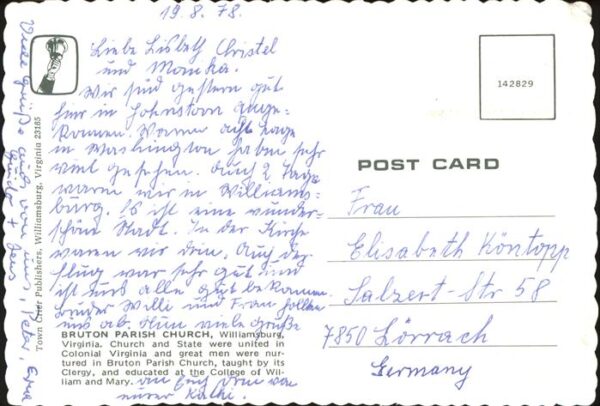 19.8.78.
Liebe Lisbeth Christel
und Monika.
Wir sind gestern gut
hier in Johnstown ange-
kommen. Waren acht Tage
in Washington haben sehr
viel gesehen. Auch 2 Tage
waren wir in Williams-
burg. Es ist eine wunder-
schöne Stadt. In der Kirche
waren wir drin. Auch der
Flug war sehr gut und
ist uns alle gut bekommen.
Bruder Willi und Frau hollten
uns ab. Nun viele Grüße
an Euch von
eurer Käthi.
Viele Grüße auch von uns, Peter, Erna
Guido + Jens
Town Crier Publishers, Williamsburg, Virginia 23185
BRUTON PARISH CHURCH, Williamsburg,
Virginia. Church and State were united in
Colonial Virginia and great men were nur-
tured in Bruton Parish Church, taught by its
Clergy, and educated at the College of Wil-
liam and Mary.
142829
POST CARD
Frau
Elisabeth Köntopp
Salzert-Str 58
7850 Lörrach
Germany